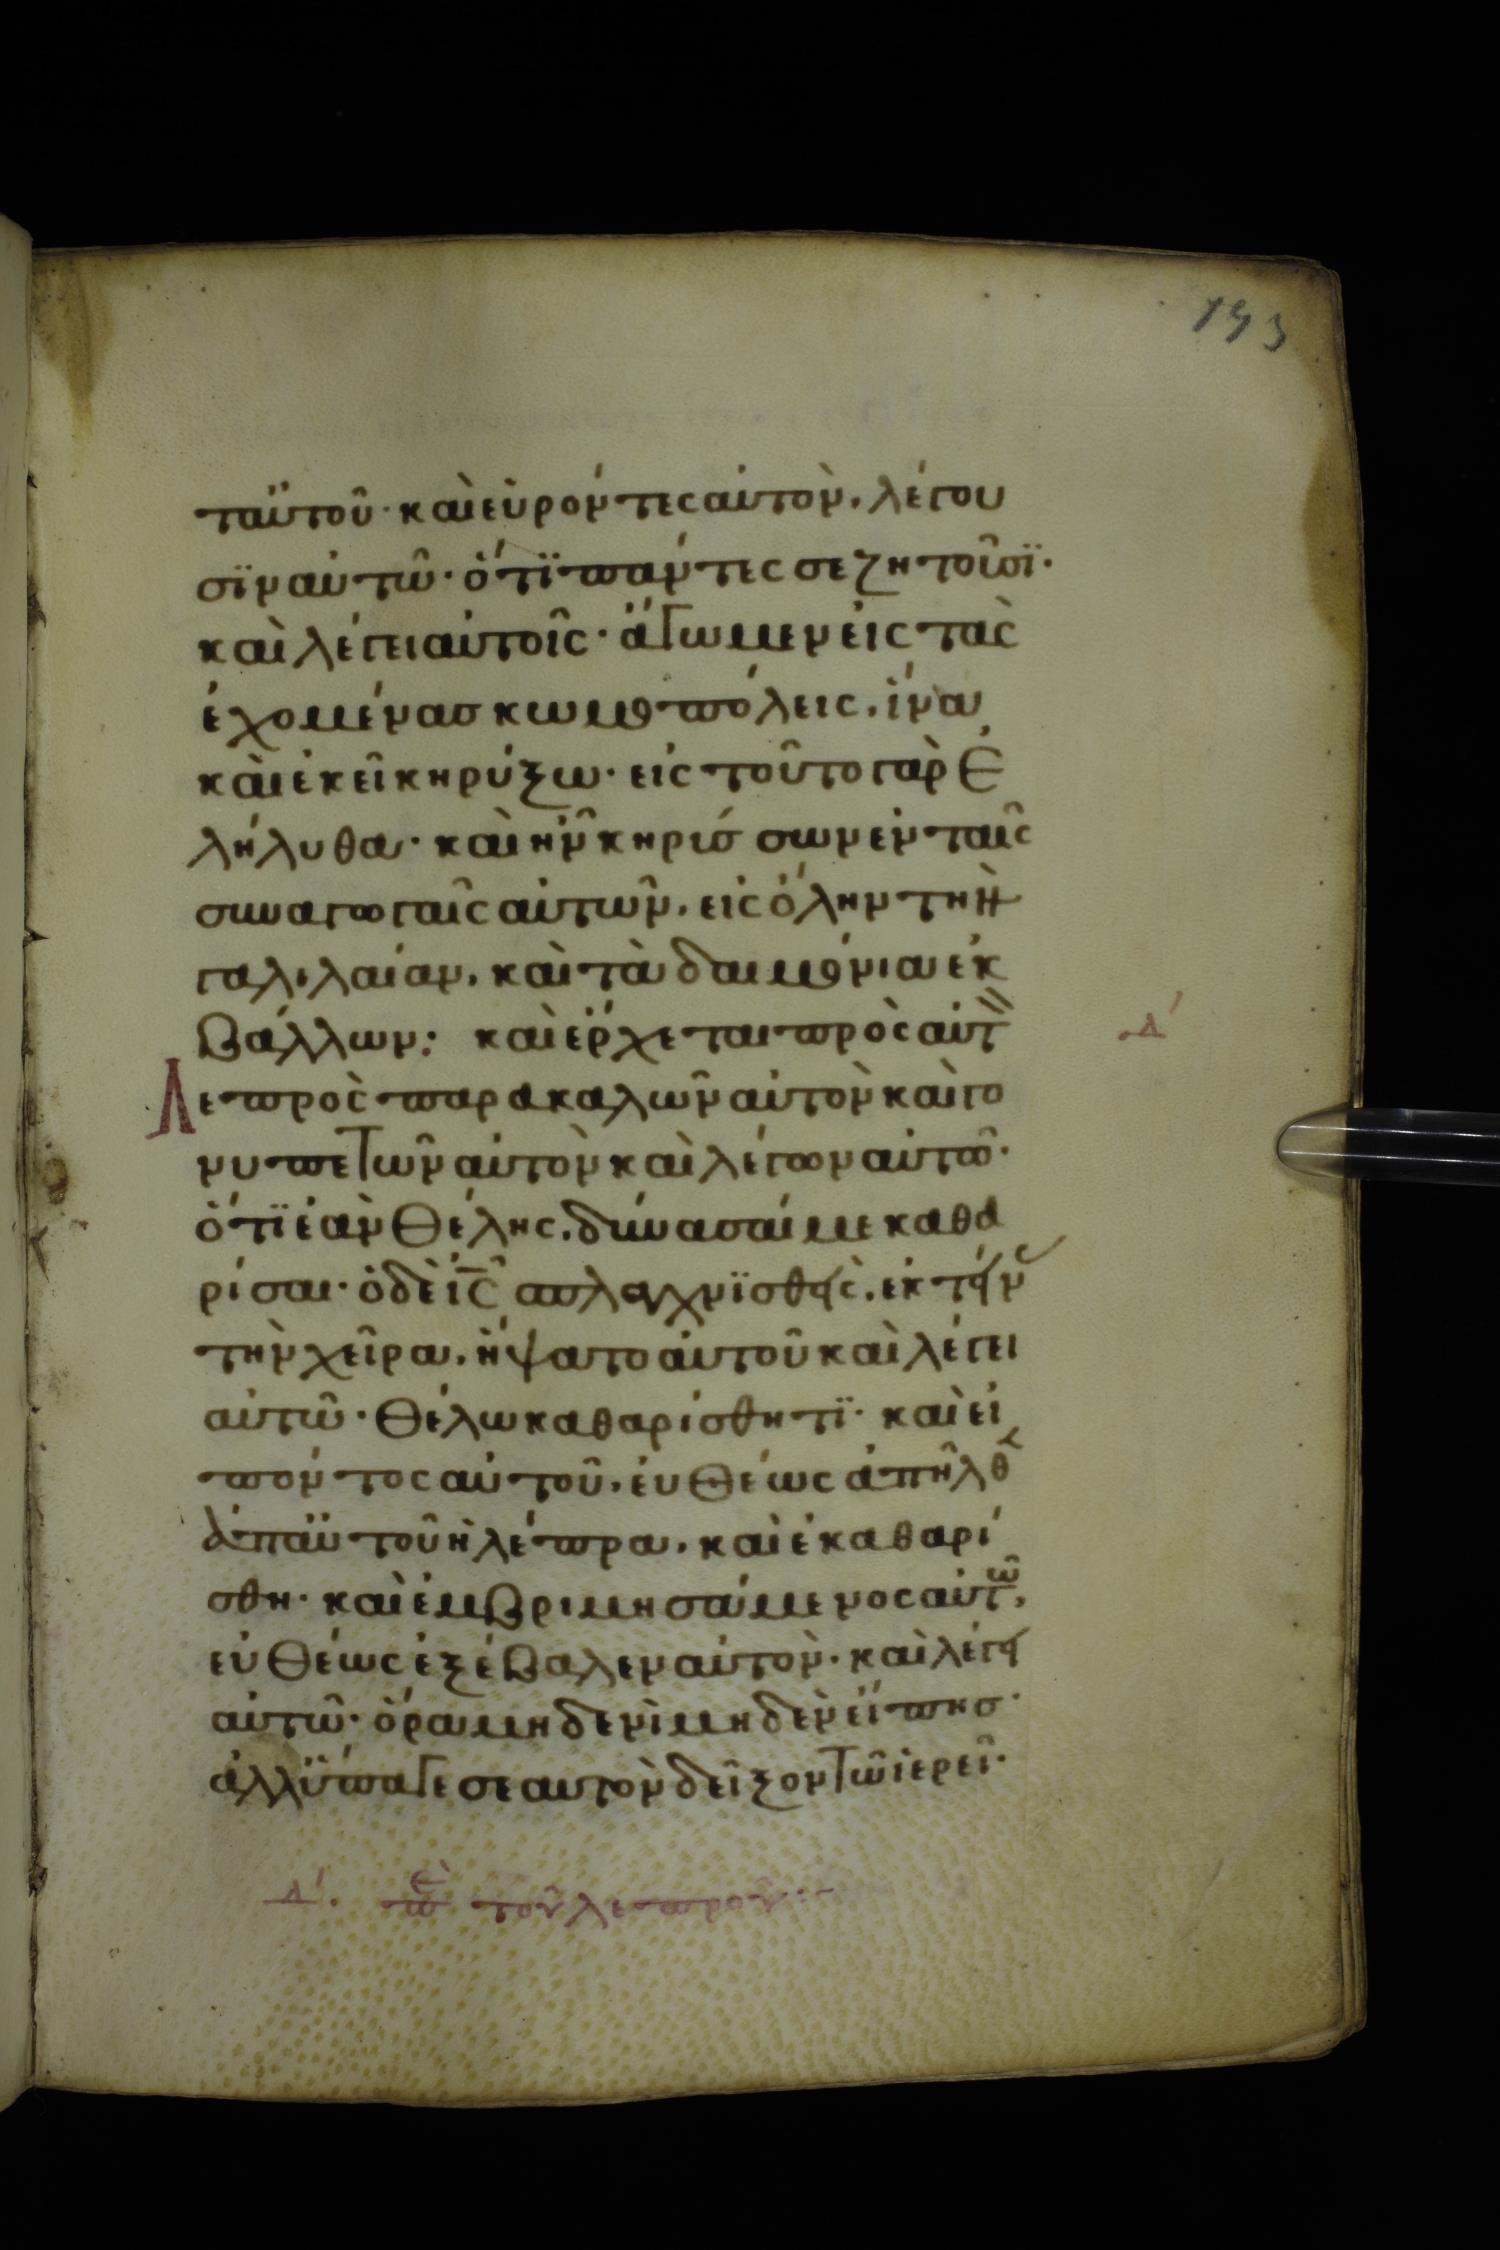 193
ταὐτοῦ· καὶ εὑρόντες αὐτὸν, λέγου
σϊν αὐτῶ· ὅτϊ πάντες σε ζητοῦσϊ·
καὶ λέγει αὐτοῖς· ἄγωμεν εἰς τὰς
ἐχομένασ κωμοπόλεις, ἵνα
καὶ ἐκεῖ κηρύξω· εἰς τοῦτο γὰρ ἐ
λήλυθα· καὶ ἦν κηρύσσων ἐν ταῖς
συναγωγαῖς αὐτῶν, εἰς ὅλην τὴν
γαλιλαίαν, καὶ τὰ δαιμόνια ἐκ
βάλλων: καὶ ἔρχεται πρὸς αὐτ
Δ´
Λεπρὸς παρακαλῶν αὐτὸν καὶ γο
νυπετῶν αὐτὸν καὶ λέγων αὐτῶ·
ὅτϊ ἐὰν θέλης, δύνασαί με καθα
ρίσαι· ὁ δὲ ἰς σπλαγχνϊσθεὶς, ἐκτείν
τὴν χεῖρα, ἥψατο αὐτοῦ καὶ λέγει
αὐτῶ· θέλω καθαρίσθητϊ· καὶ εἰ
πόντος αὐτοῦ, εὐθέως ἀπῆλθ
ἀπαὐτοῦ ἡ λέπρα, καὶ ἐκαθαρί
σθη· καὶ ἐμβριμησάμενος αὐτῶ,
εὐθέως ἐξέβαλεν αὐτὸν· καὶ λέγει
αὐτῶ· ὅρα μηδενὶ μηδὲν εἴπησ·
ἀλλὕπαγε σεαυτὸν δεῖξον τῶ ἱερεῖ·
Δ´. πε τοῦ λεπροῦ:-